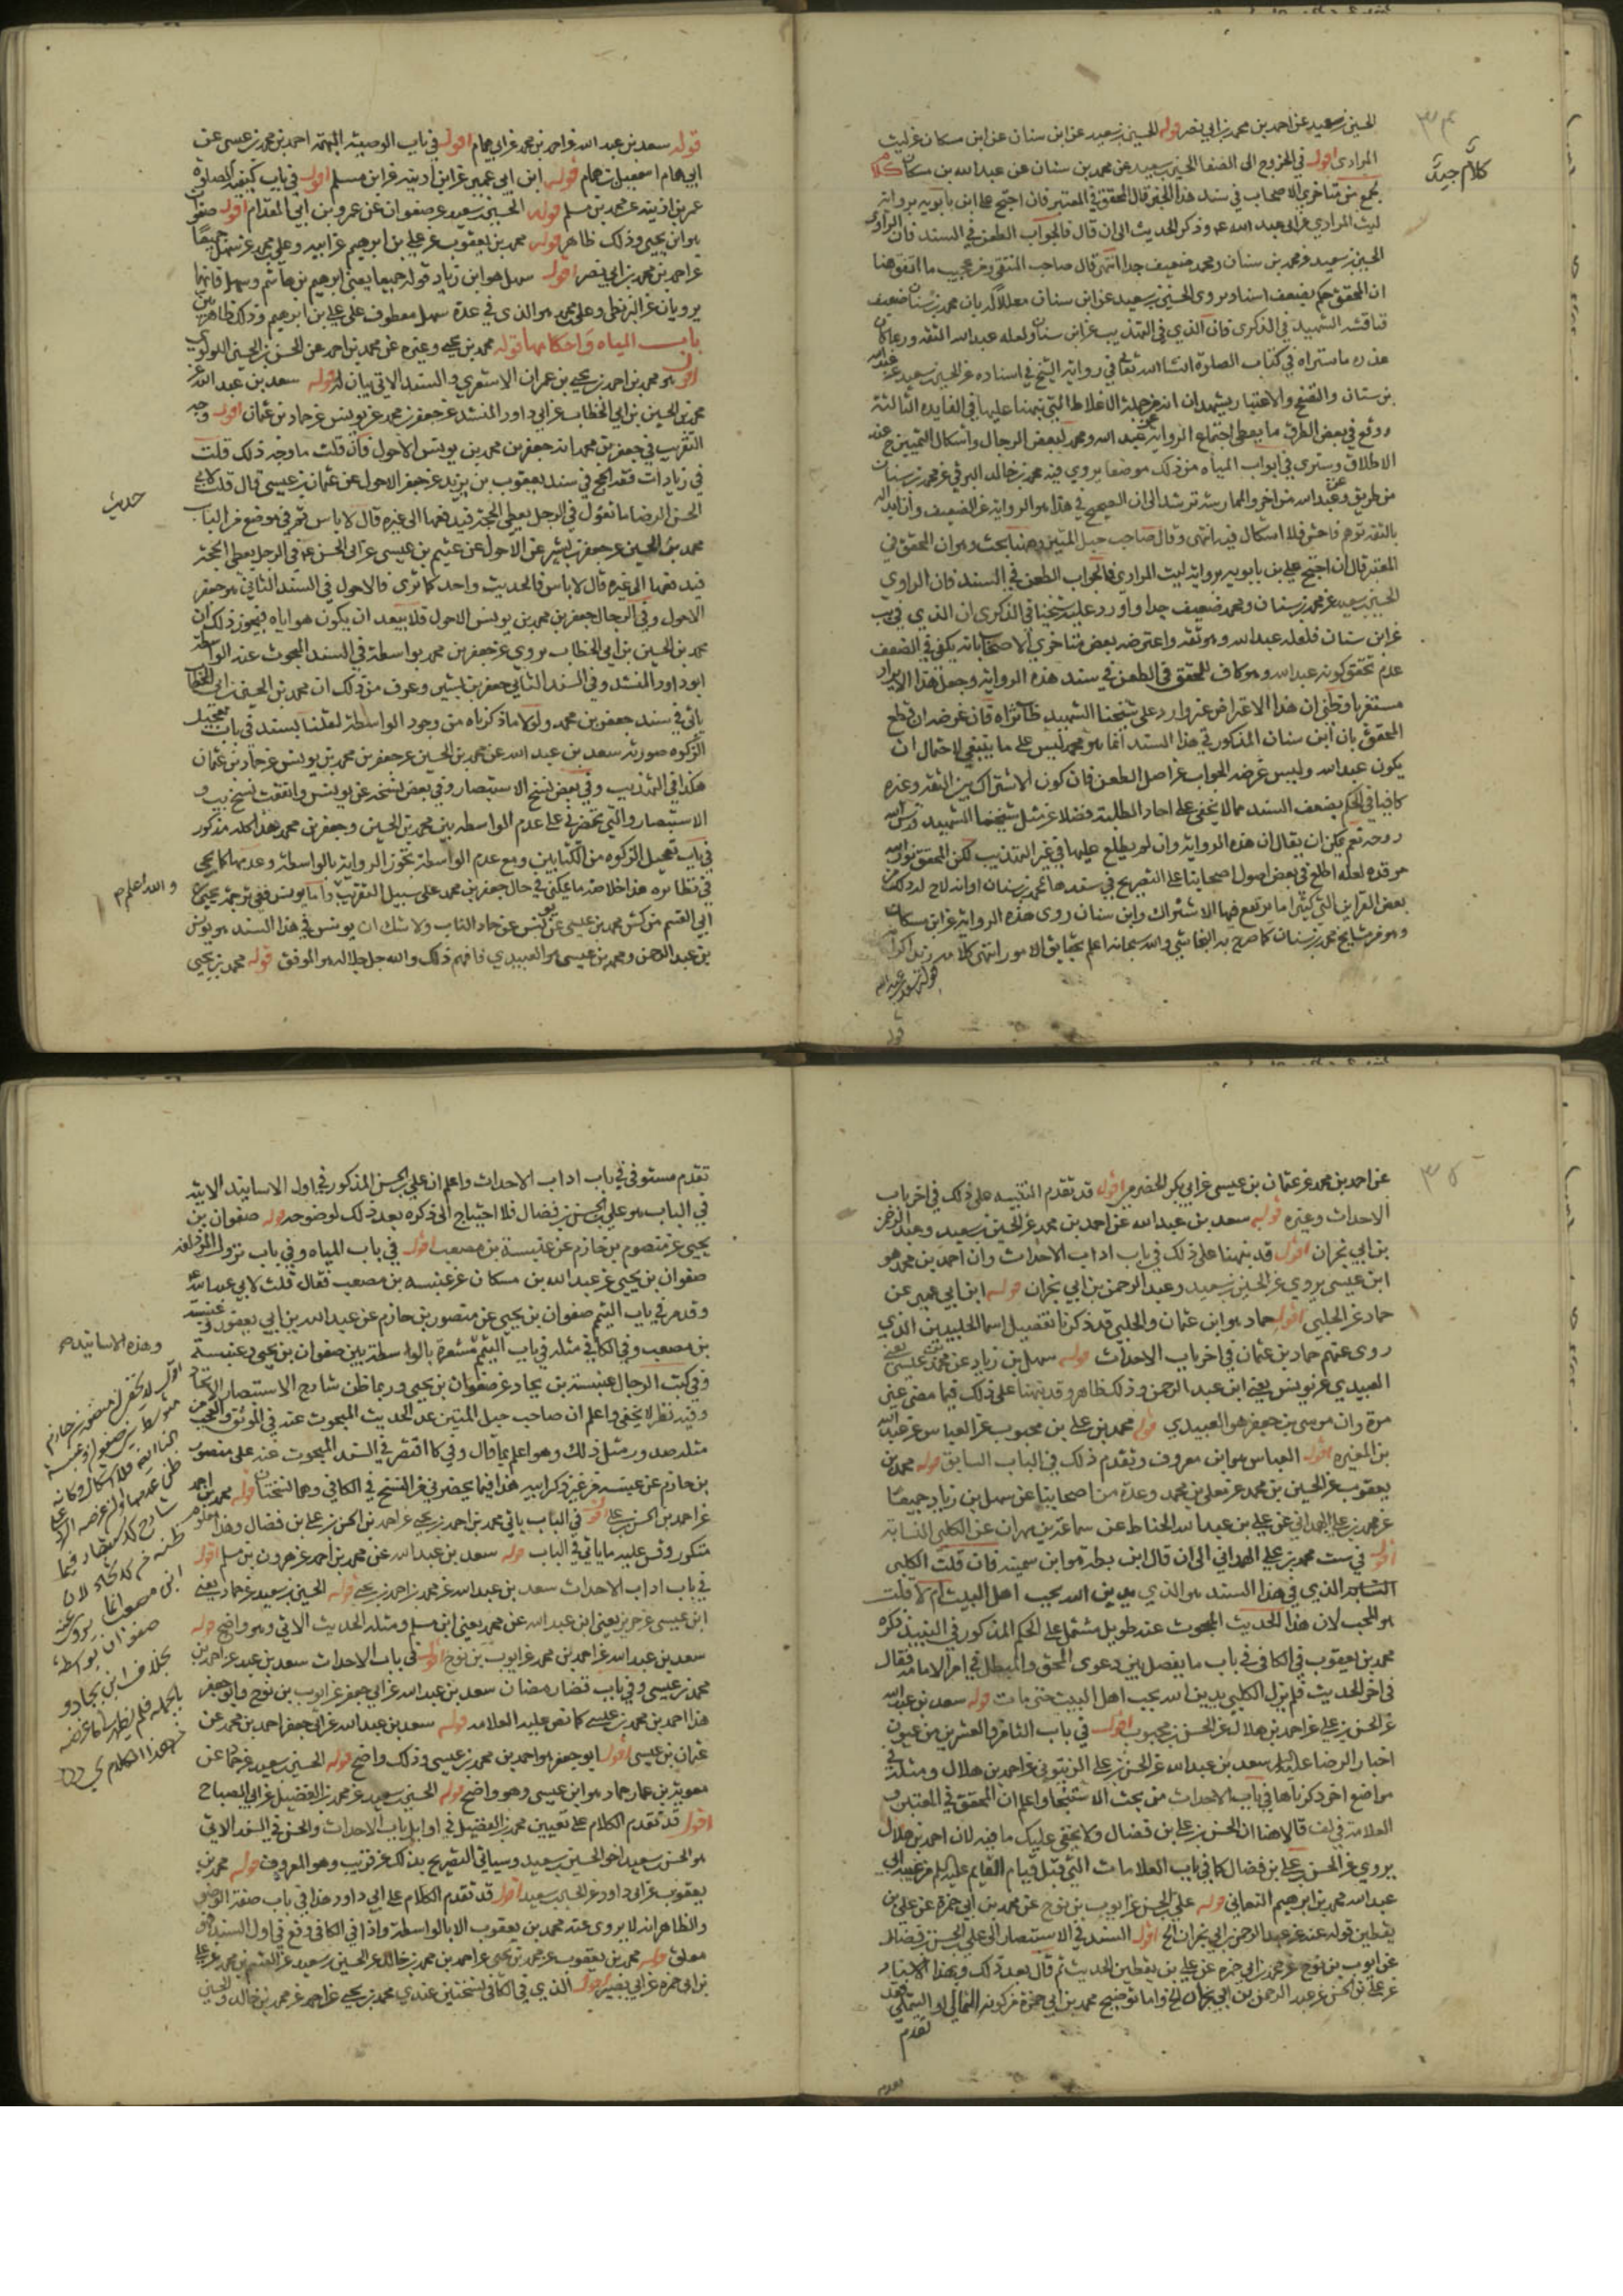 الحسين بن سعيد عن احمد بن محمد بن ابي نصر قوله الحسين بن سعيد عن ابن سنان عن ابن مسكان عن ليث
المرادى اقول في الخروج الى الصفا الحسين بن سعيد عن محمد بن سنان عن عبد الله بن مسكان
جمع من متاخري الاصحاب في سند هذا الخبر قال المحقق في المعتبر فان احتج علي ابن بابويه برواية
ليث المرادي عن ابي عبد الله ع وذكر الحديث الى ان قال فالجواب الطعن في السند فان الراوى
الحسين بن سعيد ومحمد بن سنان ومحمد ضعيف جدا انتهى قال صاحب المنتقى ومن عجيب ما اتفق هنا
ان المحقق حكم بضعف اسناد يروى الحسين بن سعيد عن ابن سنان معللا له بان محمد بن سنان ضعيف
فناقشه الشهيد في الذكرى فان الذي في التهذيب عن ابن سنان ولعله عبد الله الثقة
عذره ما ستراه في كتاب الصلوة انشا الله تعالى في رواية الشيخ في اسناده عن الحسين بن سعيد عن عبد الله
بن سنان والتتبع والاعتبار يشهد ان انه من جملة الاغلاط التي نبهنا عليها في الفايده الثالثة
ووقع في بعض الطرق ما يعطى اجتماع الرواية عن عبد الله ومحمد لبعض الرجال واشكال التمييز ح عند
الاطلاق وسترى في ابواب المياه من ذلك موضعا يروي فيه محمد بن خالد البرقي عن محمد بن سنان
من طريق وعن عبد الله من اخر والممارسة ترشد الى ان الصحيح في هذا هو الرواية عن الضعيف وان ابداله
بالثقة توهم فاحش فلا اشكال فيه انتهى وقال صاحب حبل المتين وهنا بحث وهو ان المحقق في
المعتبر قال ان احتج علي بن بابويه برواية ليث المرادي فالجواب الطعن في السند فان الراوي
الحسين بن سعيد عن محمد بن سنان ومحمد ضعيف جدا واورد عليه شيخنا في الذكرى ان الذي في يب
عن ابن سنان فلعله عبد الله وهو ثقة واعترضه بعض متاخري الاصحاب بانه يكفي في الضعف
عدم تحقق كونه عبد الله وهو كاف للمحقق في الطعن في سند هذه الرواية وجعل هذا الايراد
مستغربا وظني ان هذا الاعتراض غير وارد على شيخنا الشهيد طاب ثراه فان غرضه ان قطع
المحقق بان ابن سنان المذكور في هذا السند انما هو محمد ليس على ما ينبغي لاحتمال ان
يكون عبد الله وليس غرضه الجواب عن اصل الطعن فان كون الاشتراك بين الثقة وغيره
كافيا في الحكم بضعف السند مما لا يخفى على احاد الطلبة فضلا عن مثل شيخنا الشهيد قدس الله
روحه نعم يمكن ان يقال ان هذه الرواية وان لم يطلع عليها في غير التهذيب لكن المحقق نور الله
مرقده لعله اطلع في بعض اصول اصحابنا على التصريح في سندها بمحمد بن سنان او انه لاح له ذلك من
بعض القراين التي كثيرا ما يرتفع فيها الاشتراك وابن سنان روى هذه الرواية عن ابن مسكان
وهو من مشايخ محمد بن سنان كما صرح به النجاشي والله سبحانه اعلم بحقايق الامور انتهى كلامه
قوله سعد بن عبد الله
قوله سعد بن عبد الله عن احمد بن محمد عن ابي همام اقول في باب الوصية المبهمة احمد بن محمد بن عيسى عن
ابي همام اسمعيل بن همام قوله ابن ابي عمير عن ابن اذينه عن ابن مسلم اقول في باب كيفية الصلوة
عمر بن اذينه عن محمد بن مسلم قوله الحسين بن سعيد عن صفوان عن عمرو بن ابي المقدام اقول صفوان
هو ابن يحيى وذلك ظاهر قوله محمد بن يعقوب عن علي بن ابرهيم عن ابيه وعلي بن محمد عن سهل جميعا
عن احمد بن محمد بن ابي نصر اقول سهل هو ابن زياد قوله جميعا يعني ابرهيم بن هاشم وسهل فانهما
يرويان عن البزنطي وعلي بن محمد هو الذي في عدة سهل معطوف على علي بن ابرهيم وذلك ظاهر
باب المياه واحكامها قوله محمد بن يحيى وغيره عن محمد بن احمد عن الحسن بن الحسين اللولوي
اقول هو محمد بن احمد بن يحيى بن عمران الاشعري والسند الاتي بيان له قوله سعد بن عبد الله عن
محمد بن الحسين بن ابي الخطاب عن ابي داود المنشد عن جعفر بن محمد عن يونس عن حماد بن عثمان اقول وجه
التقريب في جعفر بن محمد انه جعفر بن محمد بن يونس الاحول فان قلت ما وجه ذلك قلت
في زيادات فقه الحج في سند يعقوب بن يزيد عن جعفر الاحول عن عثمان بن عيسى قال قلت لابي
الحسن الرضا ما تقول في الرجل يعطى الحجة فيدفعها الى غيره قال لا باس ثم في موضع من الباب
محمد بن الحسين عن جعفر بن بشير عن الاحول عن عثمن بن عيسى عن ابي الحسن ع في الرجل يعطى الحجة
فيدفعها الى غيره قال لا باس فالحديث واحد كما ترى فالاحول في السند الثاني هو جعفر
الاحول وفي الرجال جعفر بن محمد بن يونس الاحول فلا يبعد ان يكون هو اياه فيجوز ذلك ان
محمد بن الحسين بن ابي الخطاب يروي عن جعفر بن محمد بواسطة في السند المبحوث عنه الواسطة
ابو داود المنشد وفي السند الثاني جعفر بن بشير وعرف من ذلك ان محمد بن الحسين بن ابي الخطاب
ياتي في سند جعفر بن محمد ولولا ما ذكرناه من وجود الواسطة لعلنا بسند في باب تعجيل
الزكوه صورته سعد بن عبد الله عن محمد بن الحسين عن جعفر بن محمد بن يونس عن حماد بن عثمان
هكذا في التهذيب وفي بعض نسخ الاستبصار وفي بعض نسخه عن يونس واتفقت نسخ يب و
الاستبصار والتي تحضرني على عدم الواسطه بين محمد بن الحسين وجعفر بن محمد هذا كله مذكور
في باب تعجيل الزكوه من الكتابين ومع عدم الواسطة تجوز الرواية بالواسطة وعدمها كما يجي
في نظائره هذا خلاصة ما يمكنني في حال جعفر بن محمد على سبيل التقريب واما يونس ففي ترجمة يحيى بن
ابي القسم من كش محمد بن عيسى عن يونس عن حماد الناب ولا شك ان يونس في هذا السند هو يونس
بن عبد الرحمن ومحمد بن عيسى هو العبيدي فافهم ذلك والله جل جلاله هو الموفق قوله محمد بن يحيى
حديث
والله اعلم
عن احمد بن محمد عن عثمان بن عيسى عن ابي بكر الحضرمي اقول قد تقدم التنبيه على ذلك في اخر باب
الاحداث وغيره قوله سعد بن عبد الله عن احمد بن محمد عن الحسين بن سعيد وعبد الرحمن
بن ابي نجران اقول قد نبهنا على ذلك في باب اداب الاحداث وان احمد بن محمد هو
ابن عيسى يروي عن الحسين بن سعيد وعبد الرحمن بن ابي نجران قوله ابن ابي عمير عن
حماد عن الحلبي اقول حماد هو ابن عثمان والحلبي قد ذكرنا تفصيل اسما الحلبيين الذي
روى عنهم حماد بن عثمان في اخر باب الاحداث قوله سهل بن زياد عن محمد بن عيسى يعني
العبيدي عن يونس يعني ابن عبد الرحمن وذلك ظاهر وقد نبهنا على ذلك فيما مضى غير
مرة وان موسى بن جعفر هو العبيدي قوله محمد بن علي بن محبوب عن العباس عن عبد الله
بن المغيره اقول العباس هو ابن معروف وتقدم ذلك في الباب السابق قوله محمد بن
يعقوب عن الحسين بن محمد عن معلى بن محمد وعدة من اصحابنا عن سهل بن زياد جميعا
عن محمد بن علي الهمداني عن علي بن عبد الله الحناط عن سماعة بن مهران عن الكلبي النسابة
اقول في ست محمد بن علي الهمداني الى ان قال ابن بطة هو ابن سمينه فان قلت الكلبي
النسابة الذي في هذا السند هو الذي يدين الله بحب اهل البيت ام لا قلت
هو المحب لان هذا الحديث المبحوث عنه طويل مشتمل على الحكم المذكور في النبيذ ذكره
محمد بن يعقوب في الكافي في باب ما يفصل بين دعوى المحق والمبطل في امر الامامة فقال
في اخر الحديث فلم يزل الكلبي يدين الله بحب اهل البيت حتى مات قوله سعد بن عبد الله
عن الحسن بن علي عن احمد بن هلال عن الحسن بن محبوب اقول في باب الثامن والعشرين من عيون
اخبار الرضا عليه السلام سعد بن عبد الله عن الحسن بن علي الزيتوني عن احمد بن هلال ومثله في
مواضع اخر ذكرناها في باب الاحداث من بحث الاستنجا واعلم ان المحقق في المعتبر و
العلامة في لف قالا هنا ان الحسن بن علي بن فضال ولا يخفى عليك ما فيه لان احمد بن هلال
يروي عن الحسن بن علي بن فضال كما في باب العلامات التي قبل قيام القايم عليه السلام من غيبة ابي
عبد الله محمد بن ابرهيم النعماني قوله علي بن الحسن عن ايوب بن نوح عن محمد بن ابي حمزة عن علي بن
يقطين قوله عنه عن عبد الرحمن بن ابي نجران الخ اقول السند في الاستبصار الى علي بن الحسن بن فضال
عن ايوب بن نوح عن محمد بن ابي حمزه عن علي بن يقطين الحديث ثم قال بعد ذلك وبهذا الاسناد
عن علي بن الحسن عن عبد الرحمن بن ابي نجران الخ واما توضيح محمد بن ابي حمزة من كونه الثمالي او التيملي فقد
تقدم
تقدم مستوفى في باب اداب الاحداث واعلم ان علي بن الحسن المذكور في اول الاسانيد الاتية
في الباب هو علي بن الحسن بن فضال فلا احتياج الى ذكره بعد ذلك لوضوحه قوله صفوان بن
يحيى عن منصور بن حازم عن عنبسة بن مصعب اقول في باب المياه وفي باب نزول المزدلفه
صفوان بن يحيى عن عبد الله بن مسكان عن عنبسه بن مصعب فقال قلت لابي عبد الله ع
وقد مر في باب التيمم صفوان بن يحيى عن منصور بن حازم عن عبد الله بن ابي يعفور وعنبسة
بن مصعب وفي الكافي مثله في باب التيمم مشعرة بالواسطة بين صفوان بن يحيى وعنبسة
وفي كتب الرجال عنبسة بن بجاد عن صفوان بن يحيى وربما ظن شارح الاستبصار الاتحاد
وفيه نظر لا يخفى واعلم ان صاحب حبل المتين عد الحديث المبحوث عنه في الموثق والعجب من
مثله صدور مثل ذلك وهو اعلم بما قال وفي كا اقتصر في السند المبحوث عنه على منصور
بن حازم عن عنبسه من غير ذكر ابيه هذا فيما يحضرني من النسخ في الكافي وهما نسختان قوله محمد بن احمد
عن احمد بن الحسن بن علي اقول في الباب ياتي محمد بن احمد بن يحيى عن احمد بن الحسن بن علي بن فضال وهذا معلوم
متكرر وقس عليه ما ياتي في الباب قوله سعد بن عبد الله عن محمد بن احمد عن هرون بن مسلم اقول
في باب اداب الاحداث سعد بن عبد الله عن محمد بن احمد بن يحيى قوله الحسين بن سعيد عن حماد يعني
ابن عيسى عن حريز يعني ابن عبد الله عن محمد يعني ابن مسلم ومثله الحديث الاتي وهو واضح قوله
سعد بن عبد الله عن احمد بن محمد عن ايوب بن نوح اقول في باب الاحداث سعد بن عبد الله عن احمد بن
محمد بن عيسى وفي باب قضا رمضان سعد بن عبد الله عن ابي جعفر عن ايوب بن نوح وابو جعفر
هذا احمد بن محمد بن عيسى كما نص عليه العلامه قوله سعد بن عبد الله عن ابي جعفر احمد بن محمد عن
عثمان بن عيسى اقول ابو جعفر هو احمد بن محمد بن عيسى وذلك واضح قوله الحسين بن سعيد عن حماد عن
معوية بن عمار حماد هو ابن عيسى وهو واضح قوله الحسين بن سعيد عن محمد بن الفضيل عن ابي الصباح
اقول قد تقدم الكلام على تعيين محمد بن الفضيل في اوايل باب الاحداث والحسن في السند الاتي
هو الحسن بن سعيد اخو الحسين بن سعيد وسياتي التصريح بذلك عن قريب وهو المعروف قوله محمد بن
يعقوب عن ابي داود عن الحسين بن سعيد اقول قد تقدم الكلام على ابي داود هذا في باب صفة الوضو
والظاهر انه لا يروى عنه محمد بن يعقوب الا بالواسطة واذا في الكافي وقع في اول السند فهو
معلق قوله محمد بن يعقوب عن محمد بن يحيى عن احمد بن محمد بن خالد عن الحسين بن سعيد عن القسم بن محمد عن علي
بن ابي حمزه عن ابي بصير اقول الذي في الكافي نسختين عندي محمد بن يحيى عن احمد عن محمد بن خالد والحسين
وهذه الاسانيد